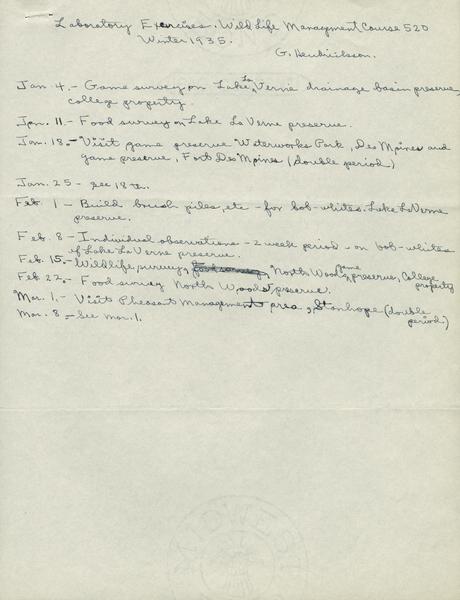 Laboratory Exercises. Wild Life Management Course 520
Winter 1935.
G. Hendrickson.
Jan 4. - Game survey on Lake La Verne drainage basin preserve,
college property.
Jan. 11 - Food survey on Lake La Verne preserve.
Jan. 18. - Visit game preserve Waterworks Park, Des Moines and
game preserve, Fort Des Moines (double period)
Jan. 25 - See 18th.
Feb 1 - Build brush piles, etc - for bob-whites. Lake La Verne
preserve.
Feb. 8 - Individual observations - 2 week period - on bob-whites
of Lake La Verne preserve.
Feb. 15. - Wildlife survey, North Woods game preserve, College
property
Feb 22. - Food survey North Woods preserve.
Mar. 1. - Visit Pheasant Management area, Stanhope (double
period.)
Mar. 8. - See Mar. 1.
MIDWEST